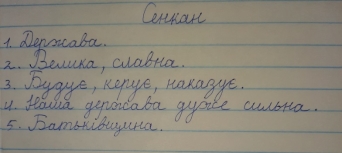 Сенкан
1. Держава.
2. Велика, славна.
3. Будує, керує, наказує.
4. Наша держава дуже сильна.
5. Батьківщина.